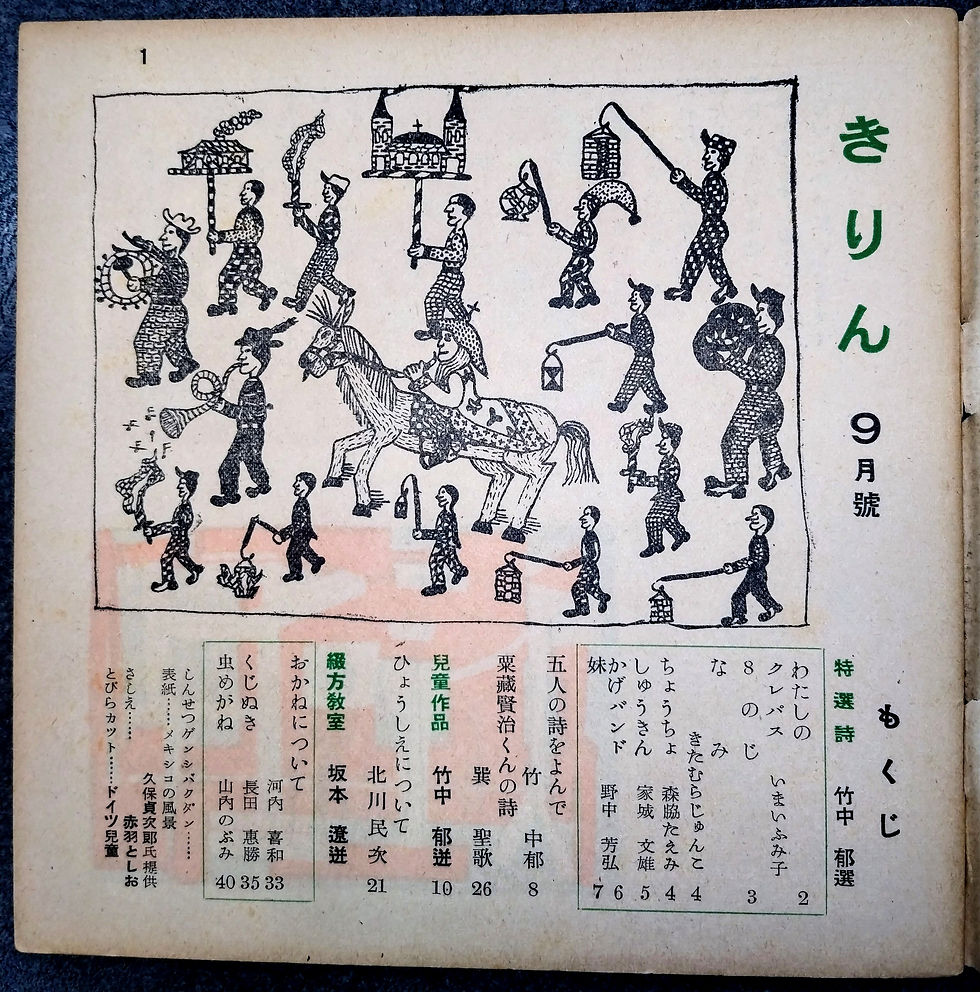 1
きりん 9月號
もくじ
特選詩 竹中 郁選
わたしの
クレパス いまいふみ子 2
8のじ 3
なみ
きたむらじゅんこ 4
ちょうちょ 森脇たえみ 4
しゅうきん 家城 文雄 5
かげバンド 野中 芳弘 6
妹 7
五人の詩をよんで
竹中郁 8
粟藏賢治くんの詩
巽 聖歌 26
兒童作品 竹中 郁選 10
ひょうしえについて
北川民次 21
綴方教室 坂本 遼選
おかねについて
河内 喜和 33
くじぬき 長田 惠勝 35
虫めがね 山内のぶみ 40
しんせつゲンシバクダン……
表紙……メキシコの風景
久保貞次郎氏提供
さしえ……赤羽としお
とびらカット……ドイツ兒童